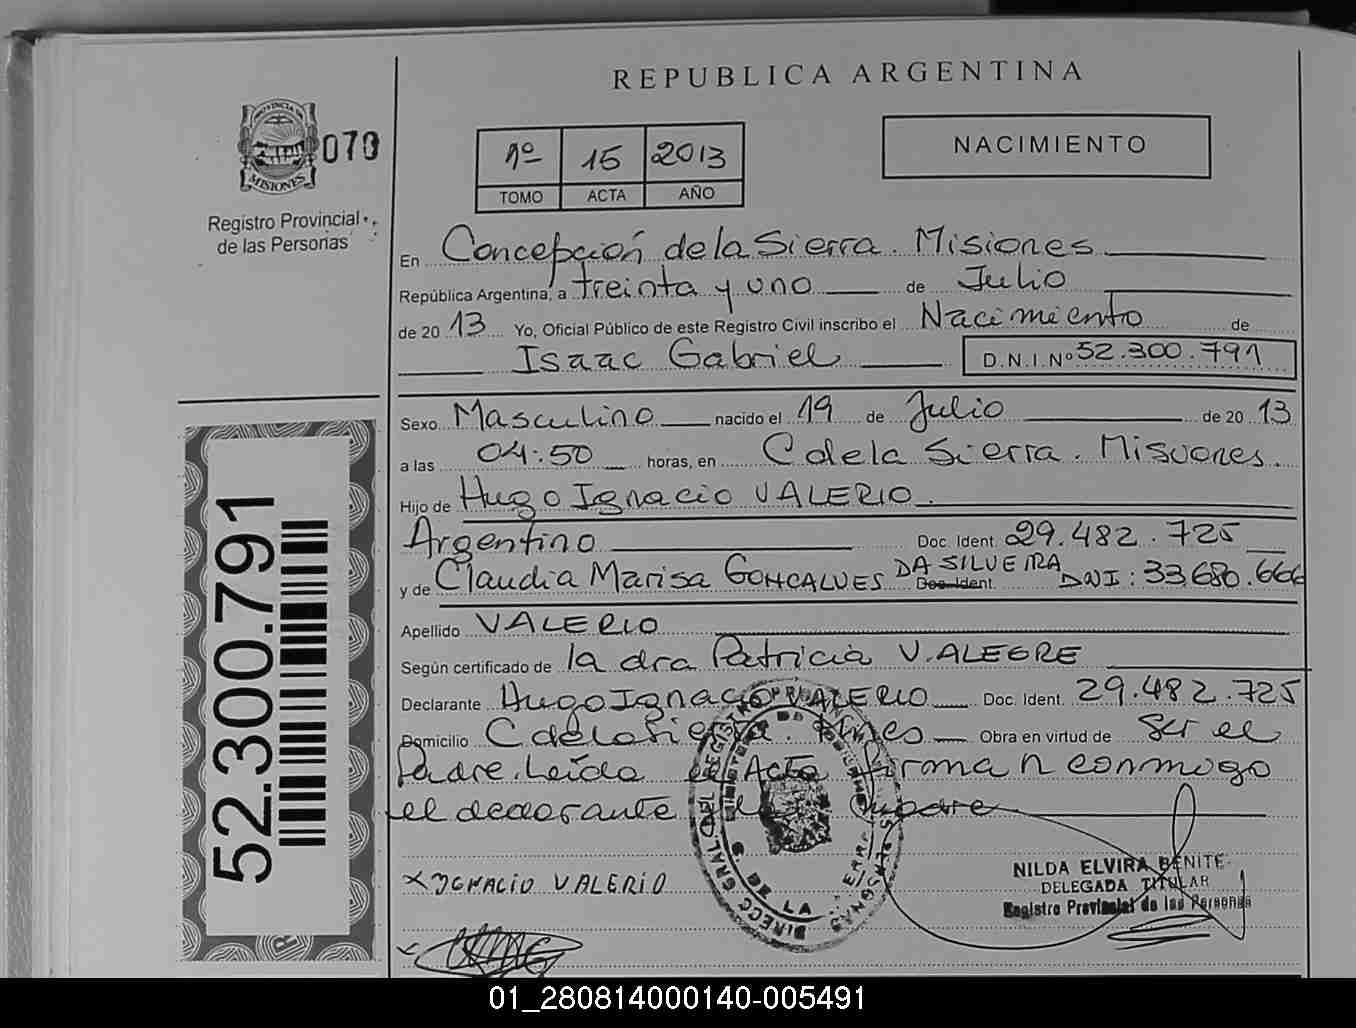 REPUBLICA ARGENTINA
PROVINCIA DE
MISIONES
070
Registro Provincial
de las Personas
1º 15 2013
TOMO ACTA AÑO
NACIMIENTO
En Concepción de la Sierra. Misiones
República Argentina, a treinta y uno de Julio
de 2013 Yo, Oficial Público de este Registro Civil inscribo el Nacimiento de
Isaac Gabriel D.N.I.Nº 52.300.791
Sexo Masculino nacido el 19 de Julio de 2013
a las 04:50 horas, en C de la Sierra. Misiones.
Hijo de Hugo Ignacio VALERIO.
Argentino Doc. Ident. 29.482.725
y de Claudia Marisa GONCALVES DA SILVEIRA Doc. Ident. DNI: 33.680.666
Apellido VALERIO
Según certificado de la dra Patricia V. ALEGRE
Declarante Hugo Ignacio VALERIO Doc. Ident. 29.482.725
Domicilio C de la Sierra. Mnes Obra en virtud de Ser el
Padre. Leída el Acta firman conmigo
el declarante y la madre
52.300.791
NILDA ELVIRA BENITE
DELEGADA TITULAR
Registro Provincial de las Personas
x IGNACIO VALERIO
01_280814000140-005491